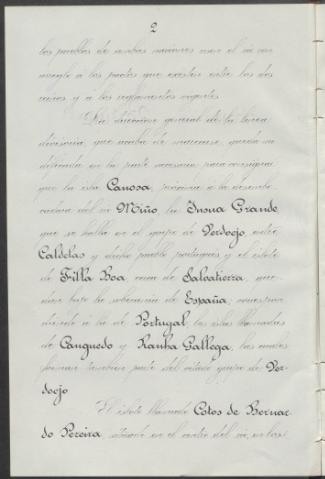 2
los pueblos de ambas naciones usar el rio con
arreglo á los pactos que existen entre los dos
reinos y á los reglamentos vigentes.
La direccion general de la línea
divisoria, que acaba de marcarse, queda
definida en la parte necesaria para consignar
que la isla Canosa, próxima á la desembo-
cadura del rio Miño, la Insua Grande
que se halla en el grupo de Verdoejo, entre
Caldelas y dicho pueblo portugues y el islote
de Filla Boa, cerca de Salvatierra, que-
dan bajo la soberanía de España, correspon-
diendo á la de Portugal las islas llamadas
de Canguedo y Ranha Gallega, las cuales
forman tambien parte del citado grupo de Ver-
doejo
El islote llamado Cotos de Bernar-
do Pereira, situado en el centro del rio,